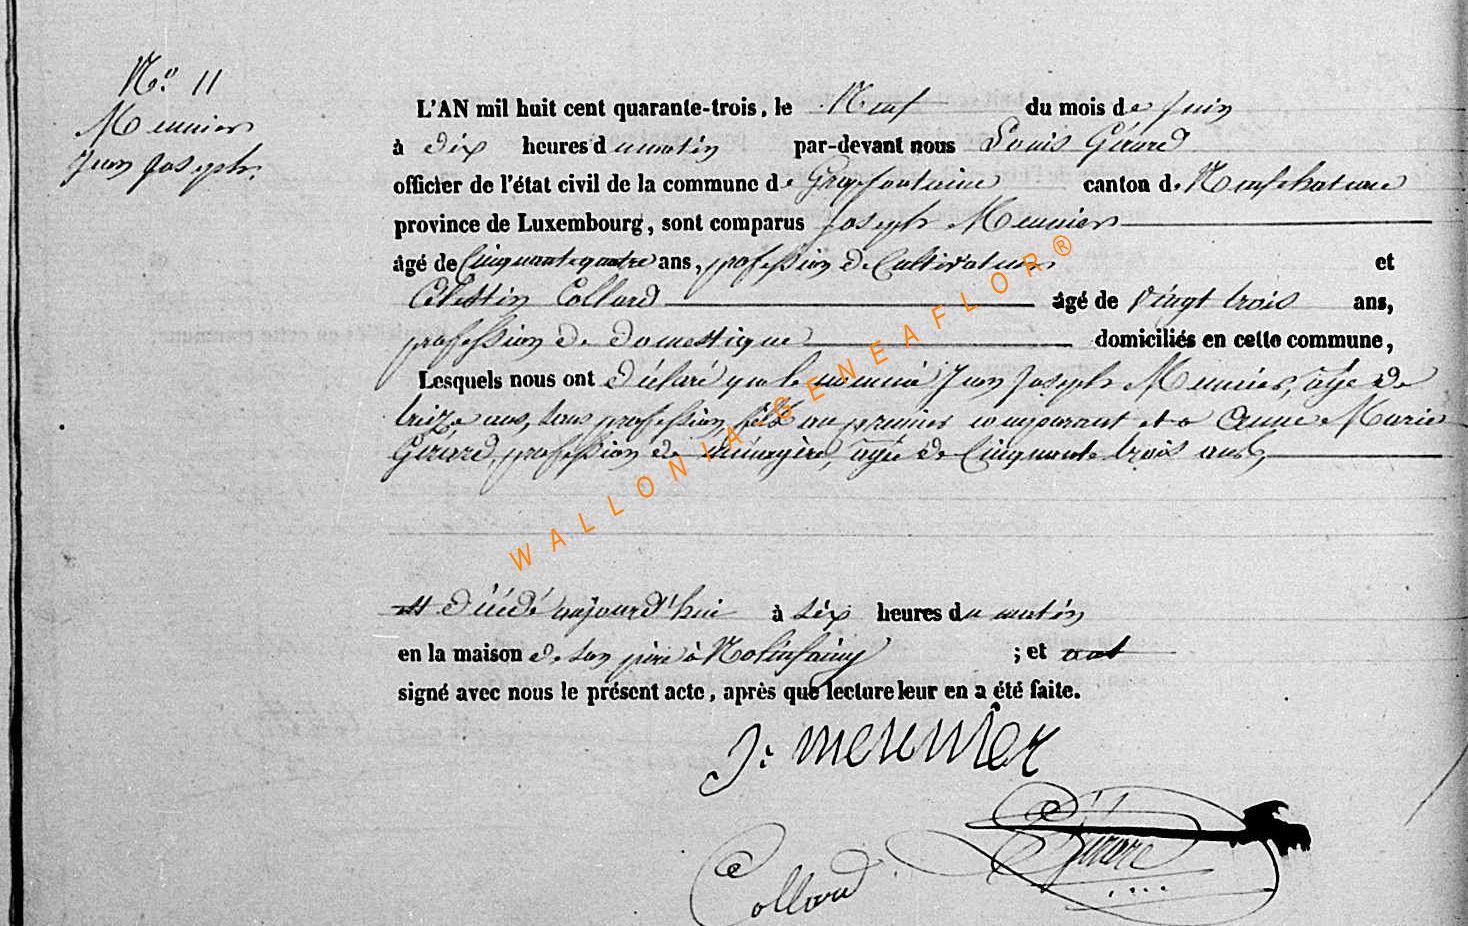 N.° 11
Meunier
Jean Joseph.
L'AN mil huit cent quarante-trois, le Neuf du mois de Juin
à dix heures du matin par-devant nous Louis Gérard
officier de l'état civil de la commune de Grapfontaine canton de Neufchateau
province de Luxembourg, sont comparus Joseph Meunier
âgé de Cinquante quatre ans, profession de Cultivateur et
Célestin Collard âgé de vingt trois ans,
profession de domestique domiciliés en cette commune,
Lesquels nous ont déclaré que le nommé Jean Joseph Meunier, âgé de
treize ans, sans profession, fils au premier comparant et à Anne Marie
Gérard, profession de ménagère, âgée de Cinquante trois ans,
est décédé aujourd'hui à six heures du matin
en la maison de son père à Molinfaing ; et ont
signé avec nous le présent acte, après que lecture leur en a été faite.
J: meunier
Gérard
Collard
WALLONIA GENEAFLOR ®